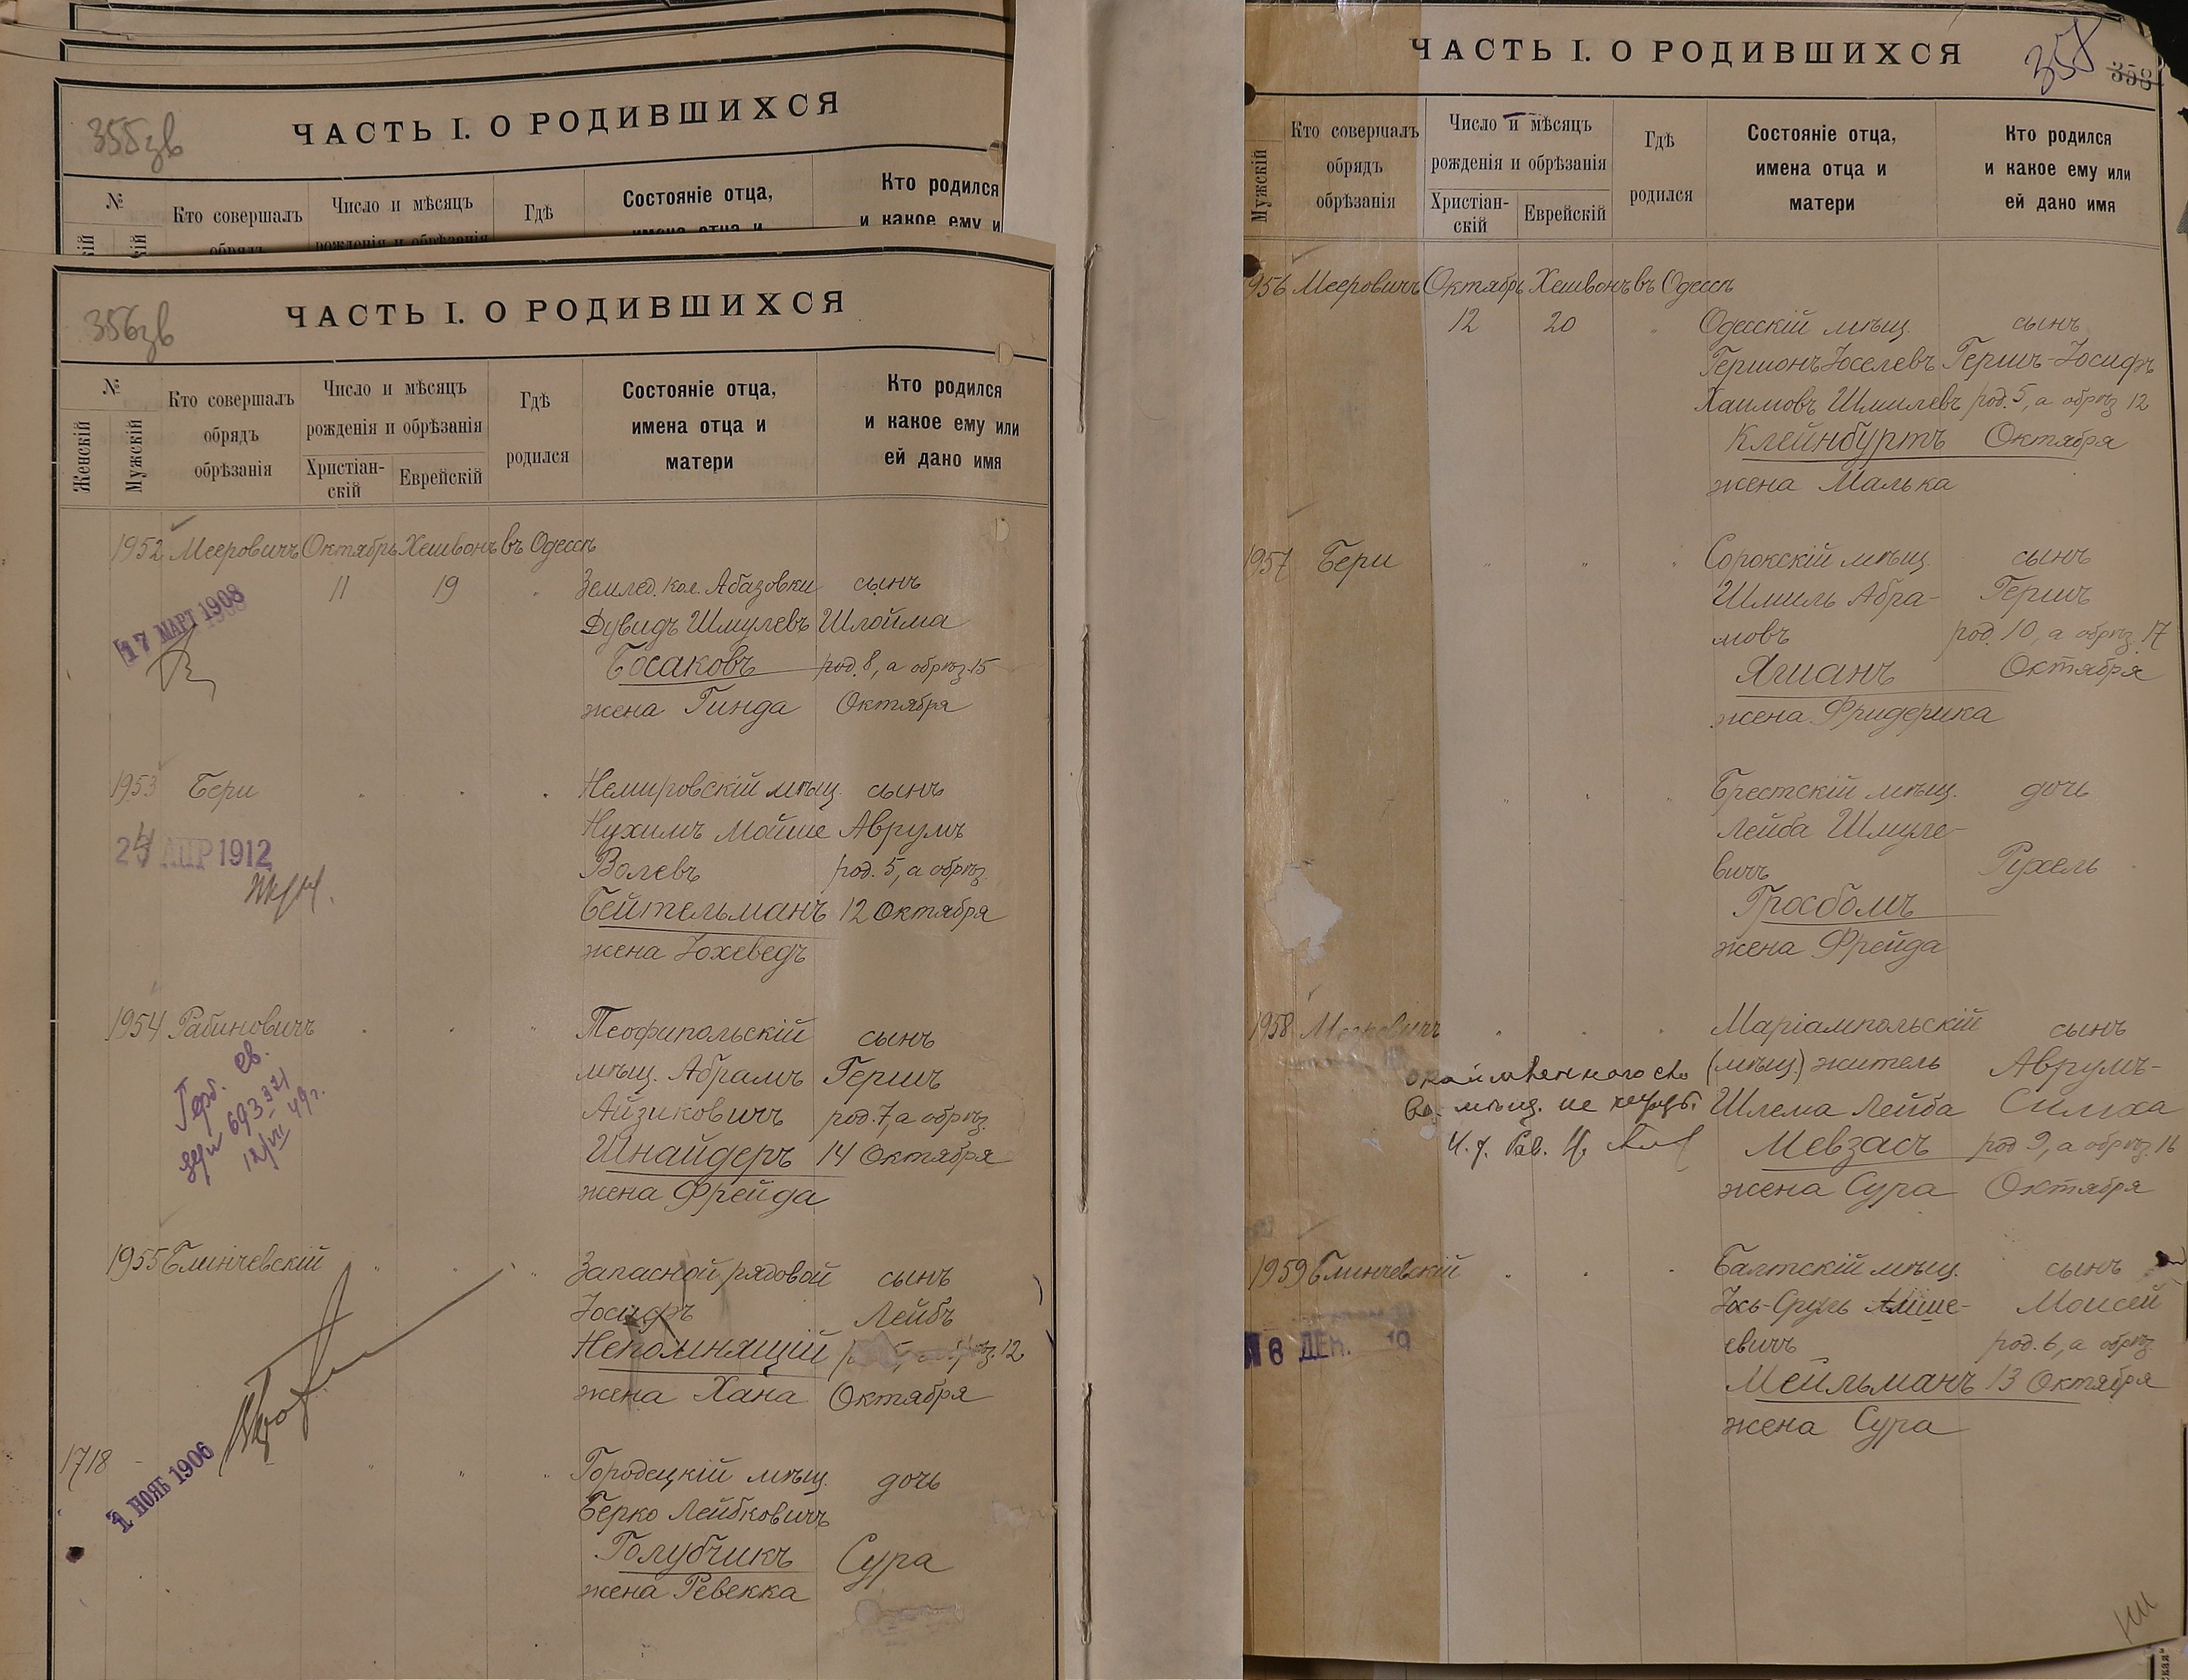 ЧАСТЬ I. О РОДИВШИХСЯ
355зв
№
Кто совершалъ
обрядъ
Число и мѣсяцъ
рожденія и обрѣзанія
Гдѣ
Состояніе отца,
имена отца и
Кто родился
и какое ему и
ЧАСТЬ I. О РОДИВШИХСЯ
356зв
№
Женскій
Мужскій
Кто совершалъ
обрядъ
обрѣзанія
Число и мѣсяцъ
рожденія и обрѣзанія
Христіан-
скій
Еврейскій
Гдѣ
родился
Состояніе отца,
имена отца и
матери
Кто родился
и какое ему или
ей дано имя
1952 Мееровичъ Октябрь Хешвонъ въ Одессѣ
11 19 Землед. кол. Абазовки сынъ
Дувидъ Шмулевъ Шлойма
Босаковъ род. 8, а обрѣз. 15
жена Гинда Октября
17 МАРТ 1908
1953 Бери Немировскій мѣщ. сынъ
Нухимъ Мойше Аврумъ
Волевъ род. 5, а обрѣз.
Бейтельманъ 12 Октября
жена Іохеведъ
24 АПР 1912
1954 Рабиновичъ Теофипольскій сынъ
мѣщ. Абрамъ Гершъ
Айзиковичъ род. 7, а обрѣз.
Шнайдеръ 14 Октября
жена Фрейда
Герб. св.
693321
12/VII 49г.
1955 Блинчевскій Запасной рядовой сынъ
Іосифъ Лейбъ
Непомнящій обрѣз. 12
жена Хана Октября
1 НОЯБ 1906
1718 Городецкій мѣщ. дочь
Берко Лейбковичъ
Голубчикъ Сура
жена Ревекка
ЧАСТЬ I. О РОДИВШИХСЯ
358
Мужскій
Кто совершалъ
обрядъ
обрѣзанія
Число и мѣсяцъ
рожденія и обрѣзанія
Христіан-
скій
Еврейскій
Гдѣ
родился
Состояніе отца,
имена отца и
матери
Кто родился
и какое ему или
ей дано имя
956 Мееровичъ Октябрь Хешвонъ въ Одессѣ
12 20 Одесскій мѣщ. сынъ
Гершонъ Іоселевъ Гершъ-Іосифъ
Хаимовъ Шмилевъ род. 5, а обрѣз 12
Клейнбуртъ Октября
жена Малька
1957 Бери Сорокскій мѣщ. сынъ
Шмиль Абра- Гершъ
мовъ род. 10, а обрѣз. 17
Ягианъ Октября
жена Фридерика
Брестскій мѣщ. дочь
Лейба Шмуле-
вичъ Рухель
Гросбомъ
жена Фрейда
1958 Мееровичъ Маріампольскій сынъ
(мѣщ.) житель Аврумъ-
Шлема Лейба Симха
Мевзасъ род 9, а обрѣз. 16
жена Сура Октября
мѣщ. не
1959 Блинчевскій Балтскій мѣщ. сынъ
Іось-Сруль Моисей
евичъ род. 6, а обрѣз.
Мейльманъ 13 Октября
жена Сура
6 ДЕК. 19